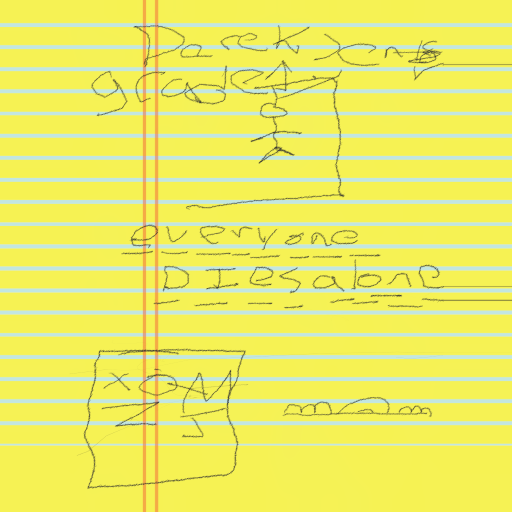 Derek Jens
grade 1
everyone
DIes alone
X O M
Z J
mom